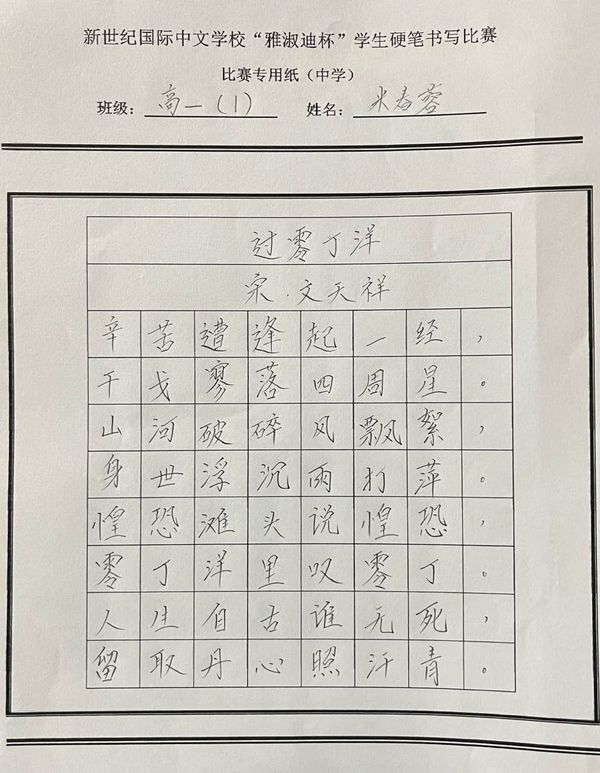 新世纪国际中文学校“雅淑迪杯”学生硬笔书写比赛
比赛专用纸（中学）
班级：高一（1） 姓名：米春蓉
过零丁洋
宋·文天祥
辛苦遭逢起一经，
干戈寥落四周星。
山河破碎风飘絮，
身世浮沉雨打萍。
惶恐滩头说惶恐，
零丁洋里叹零丁。
人生自古谁无死，
留取丹心照汗青。